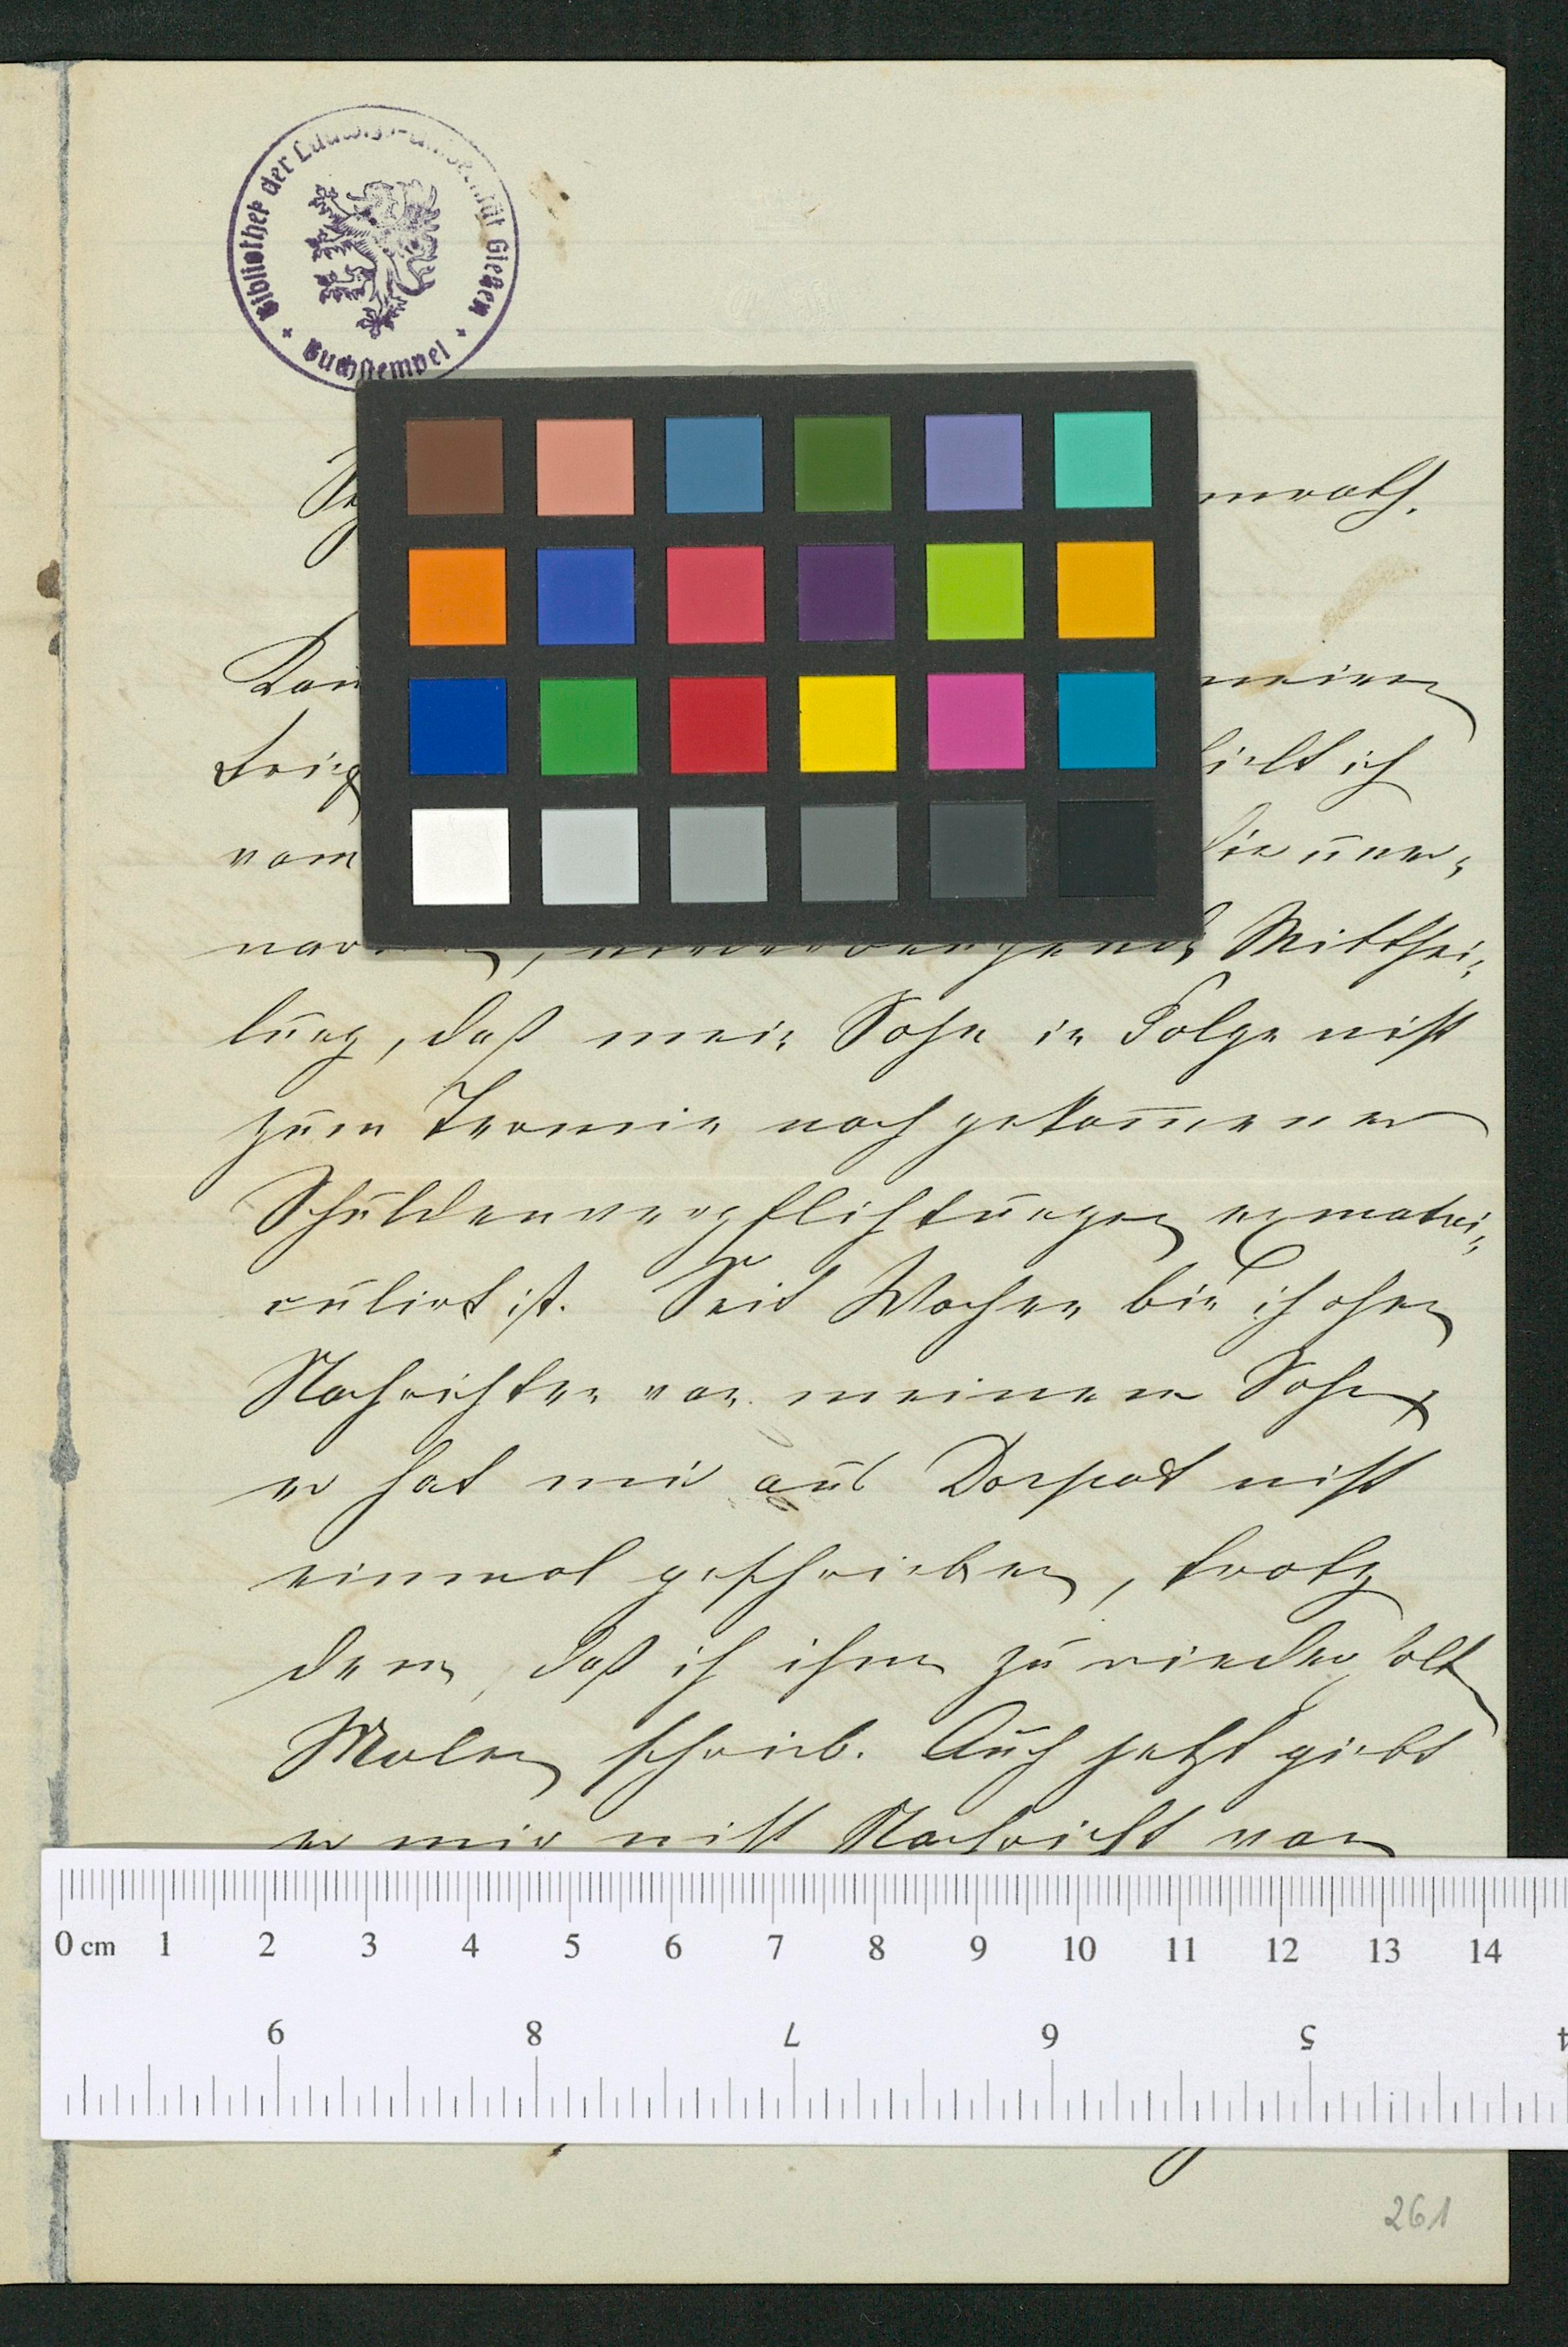 Bibliothek der Ludwigs-Universität Gießen
Buchstempel
nrath.
meinen
hielt ich
vom die uner-
niederbeugende Mitthei-
lung, daß mein Sohn in Folge nicht
zum Termin nachgekommener
Schuldenverpflichtungen exmatri-
culirt ist. Seit Wochen bin ich ohne
Nachrichten von meinem Sohn,
er hat mir aus Dorpat nicht
einmal geschrieben, trotz
dem, daß ich ihm zu wiederholt
Malen schrieb. Auch jetzt giebt
er mir nicht Nachricht von
0 cm 1 2 3 4 5 6 7 8 9 10 11 12 13 14
9 8 7 6 5 4
261